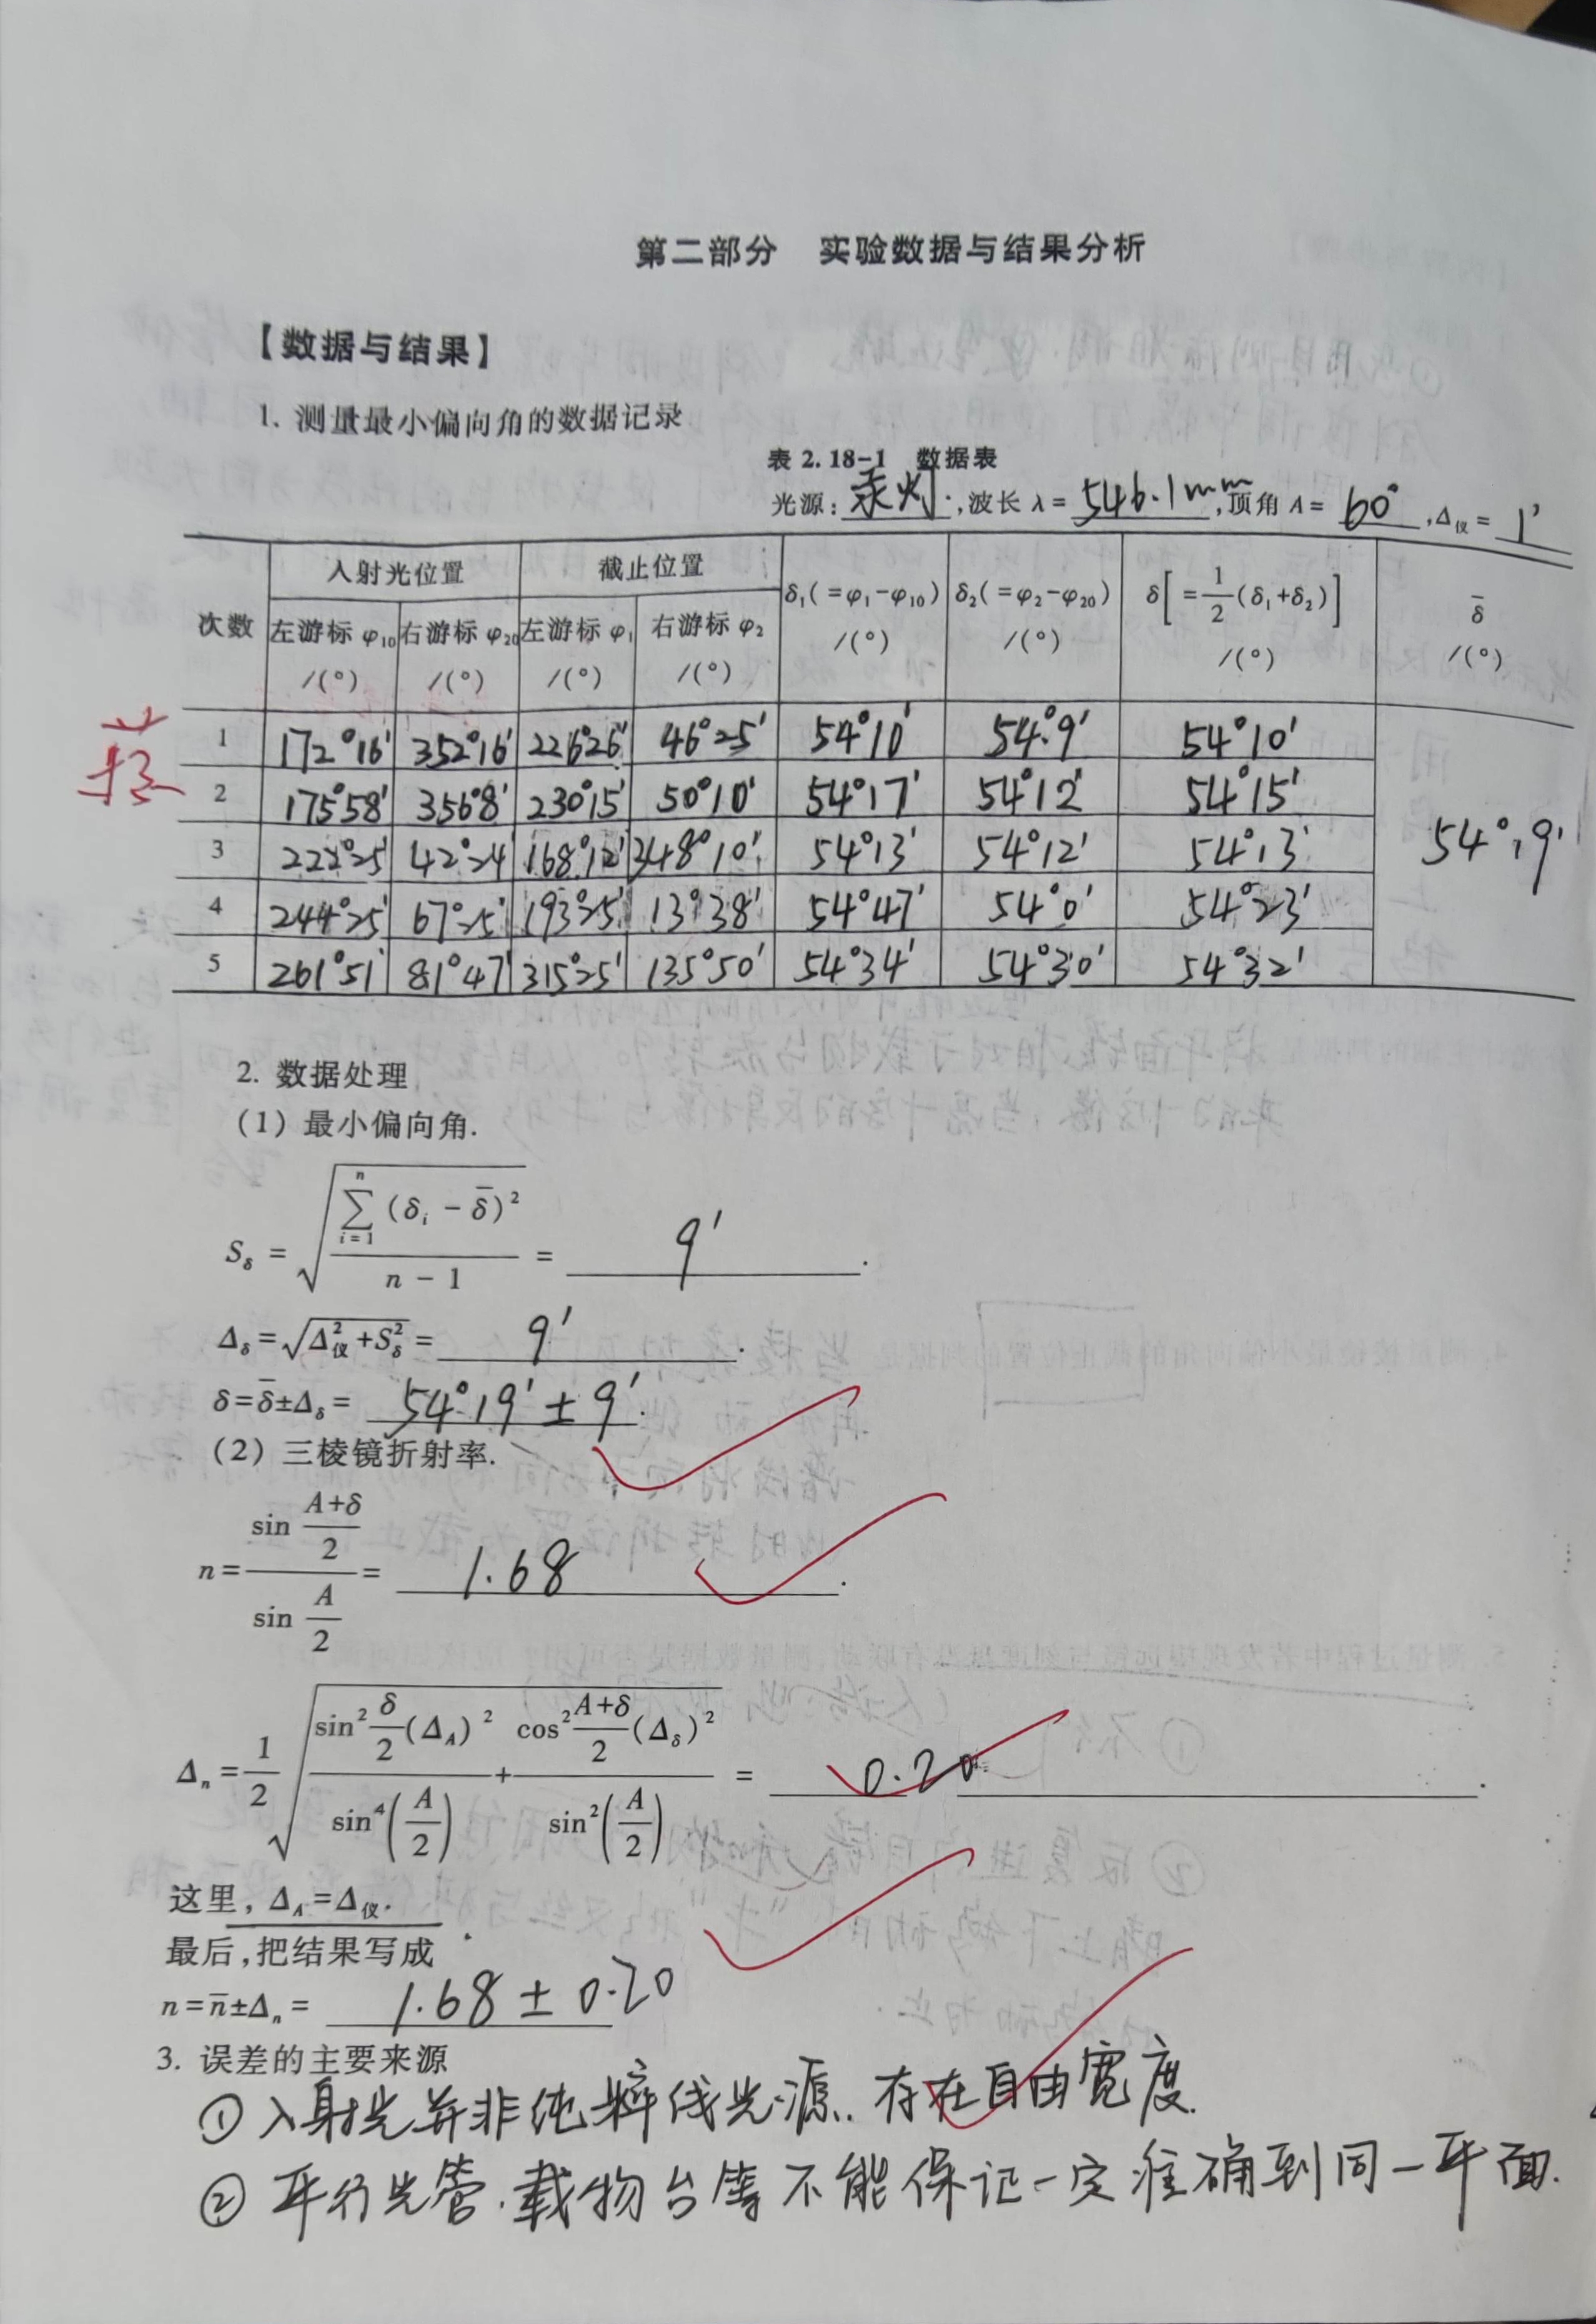 第二部分 实验数据与结果分析
【数据与结果】
1. 测量最小偏向角的数据记录
表 2.18-1 数据表
光源: 汞灯 ,波长 λ= 546.1mm ,顶角 A= 60° ,Δ仪= 1'
次数 入射光位置 截止位置 δ₁(=φ₁-φ₁₀) /(°) δ₂(=φ₂-φ₂₀) /(°) δ[=1/2(δ₁+δ₂)] /(°) δ̄ /(°)
左游标 φ₁₀ /(°) 右游标 φ₂₀ /(°) 左游标 φ₁ /(°) 右游标 φ₂ /(°)
1 172°16' 352°16' 226°26' 46°25' 54°10' 54°9' 54°10'
2 175°58' 356°8' 230°15' 50°10' 54°17' 54°12' 54°15'
3 222°25' 42°24' 168°12' 348°10' 54°13' 54°12' 54°13'
54°19'
4 244°25' 67°25' 193°25' 13°38' 54°47' 54°0' 54°23'
5 261°51' 81°47' 315°25' 135°50' 54°34' 54°30' 54°32'
2. 数据处理
(1) 最小偏向角.
Sδ = √(∑ⁿᵢ₌₁(δᵢ - δ̄)²/(n - 1)) = 9' .
Δδ=√(Δ²仪+S²δ)= 9' .
δ=δ̄±Δδ= 54°19' ± 9' .
(2) 三棱镜折射率.
n= sin((A+δ)/2) / sin(A/2) = 1.68 .
Δn= 1/2 √(sin²(δ/2)(ΔA)²/sin⁴(A/2) + cos²((A+δ)/2)(Δδ)²/sin²(A/2)) = 0.20 .
这里, ΔA=Δ仪.
最后,把结果写成
n=n̄±Δn= 1.68 ± 0.20
3. 误差的主要来源
① 入射光并非纯粹线光源. 存在自由宽度.
② 平行光管.载物台等不能保证一定准确到同一平面.